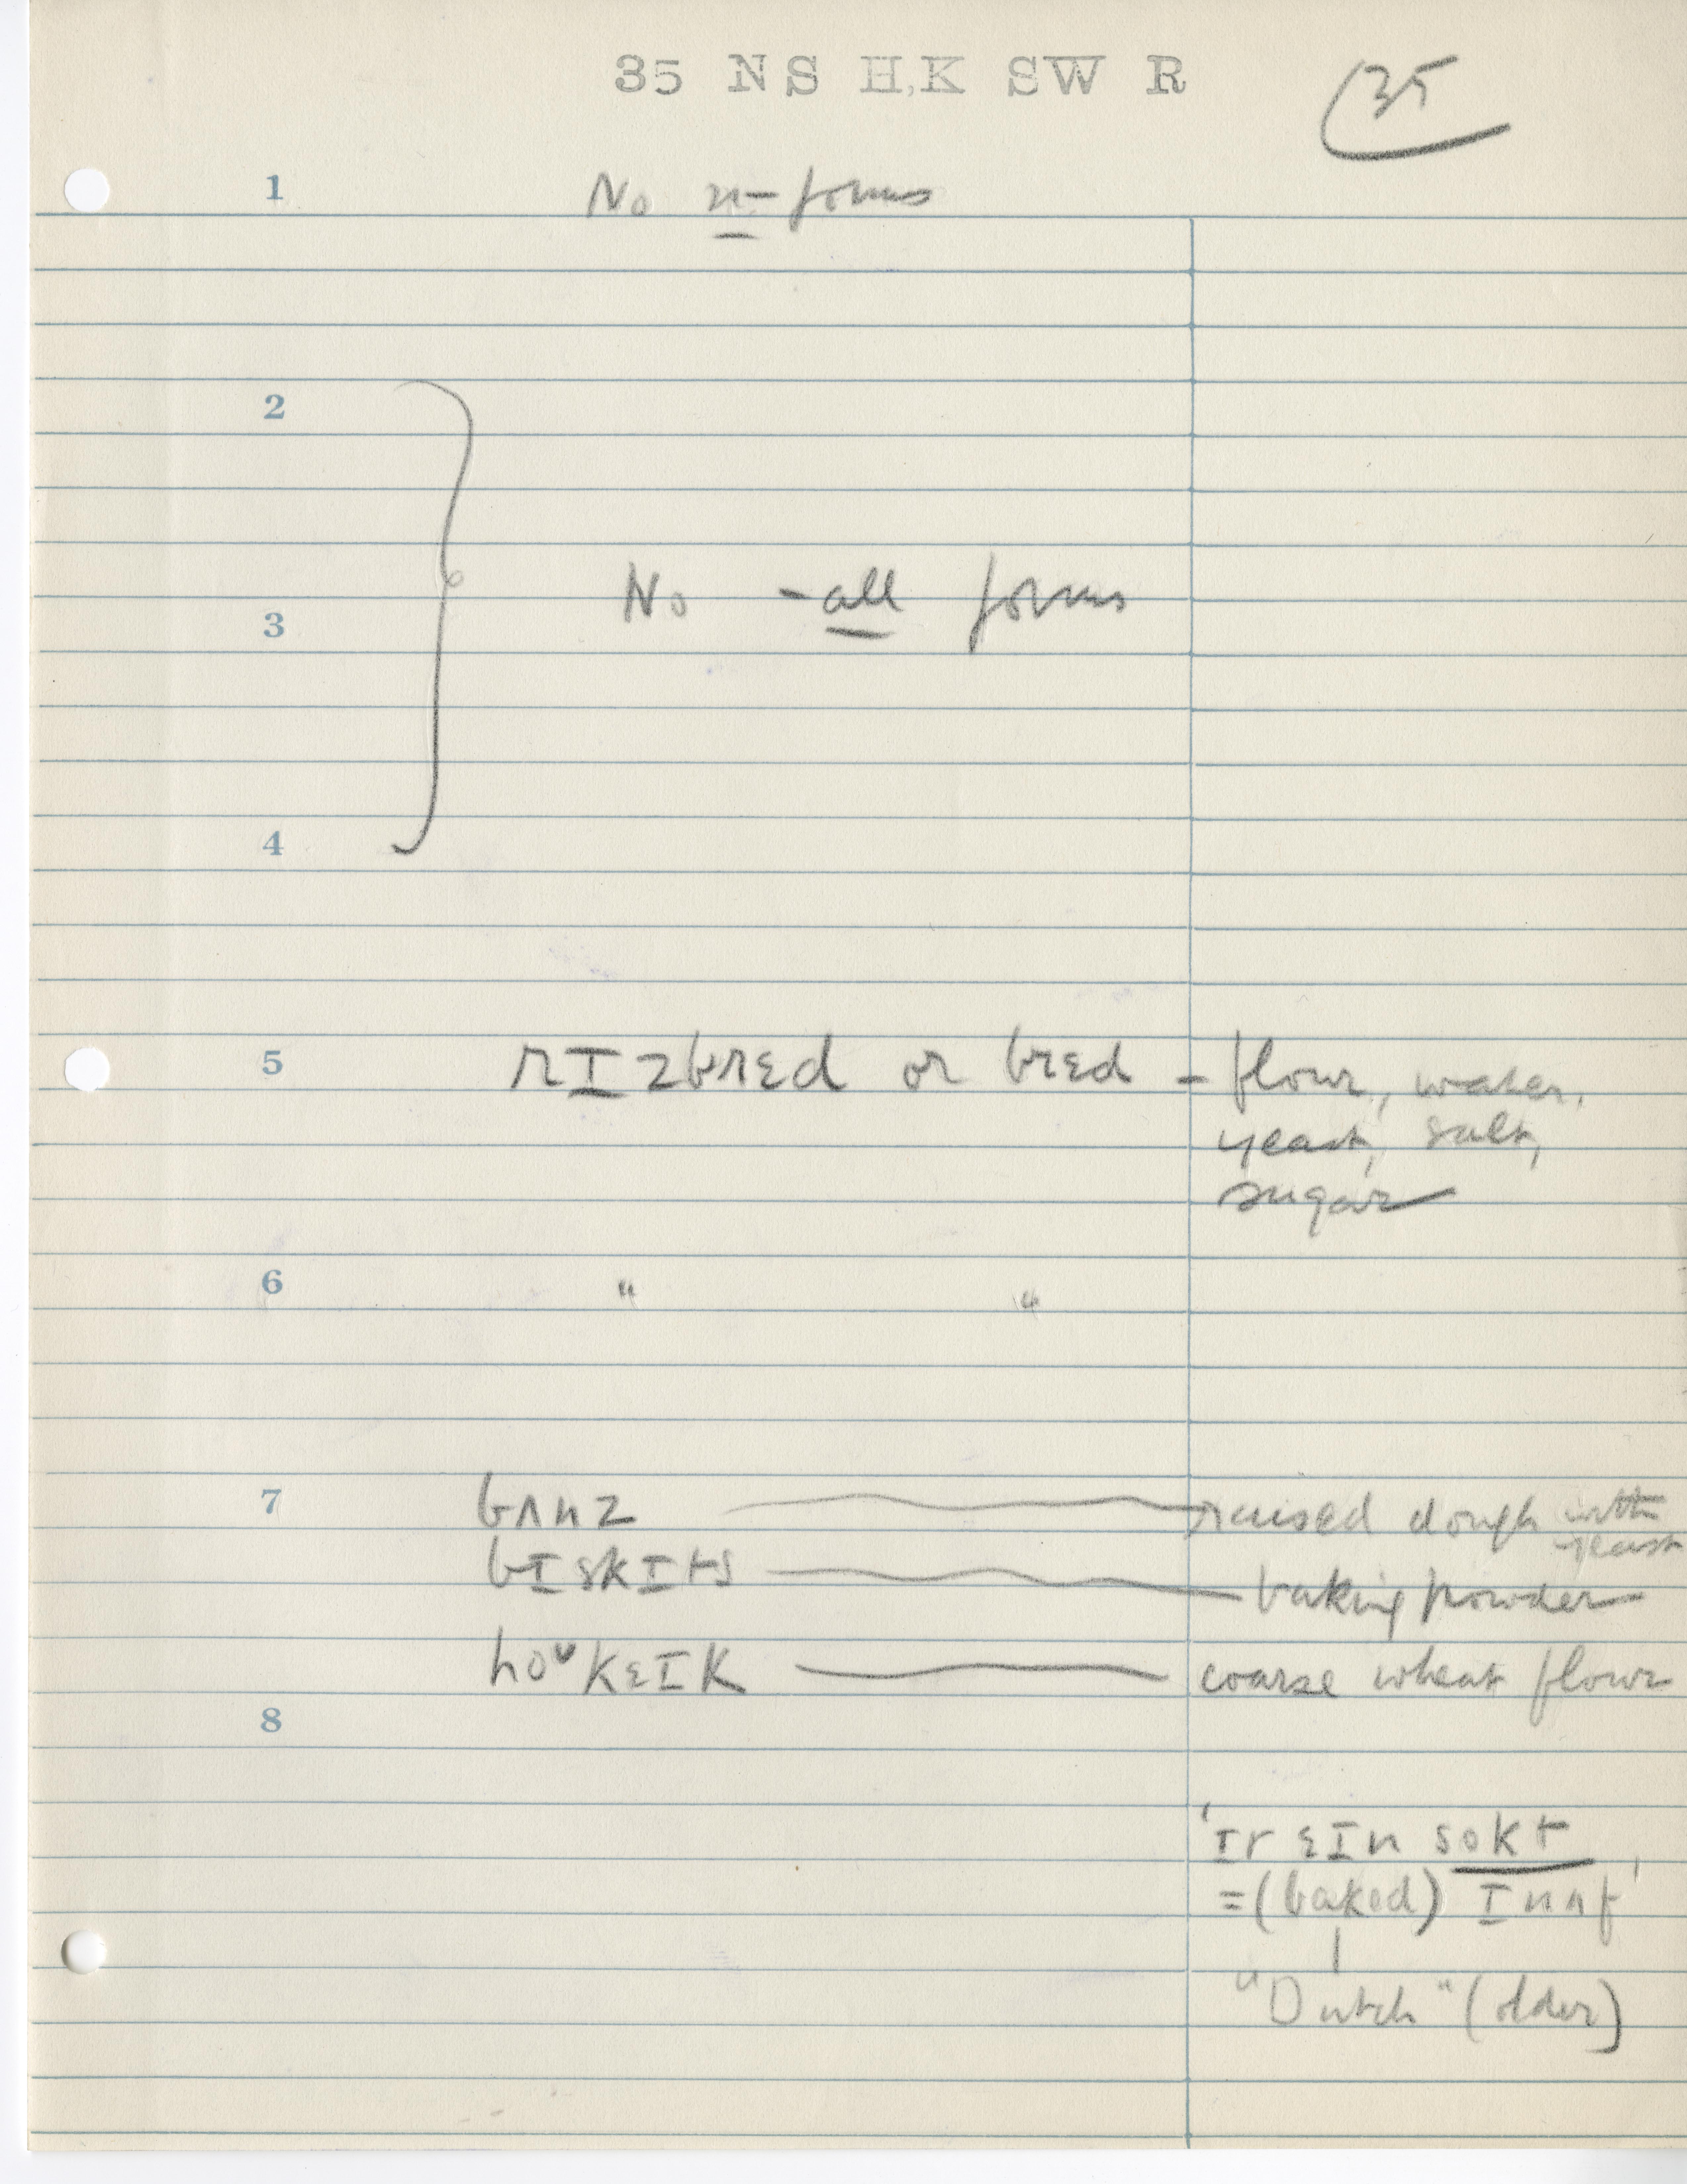 35 NS H,K SW R
35
1 No n- forms
2
3 No -all forms
4
5 rIzbrɛd or brɛd - flour, water,
yeast, salt,
sugar
6 " "
7 bʌnz raised dough with
yeast
bIskIts baking powder
hoᵛkɛIk coarse wheat flour
8
'It ɛIn sokt
=(baked) Inʌf'
"Dutch" (older)